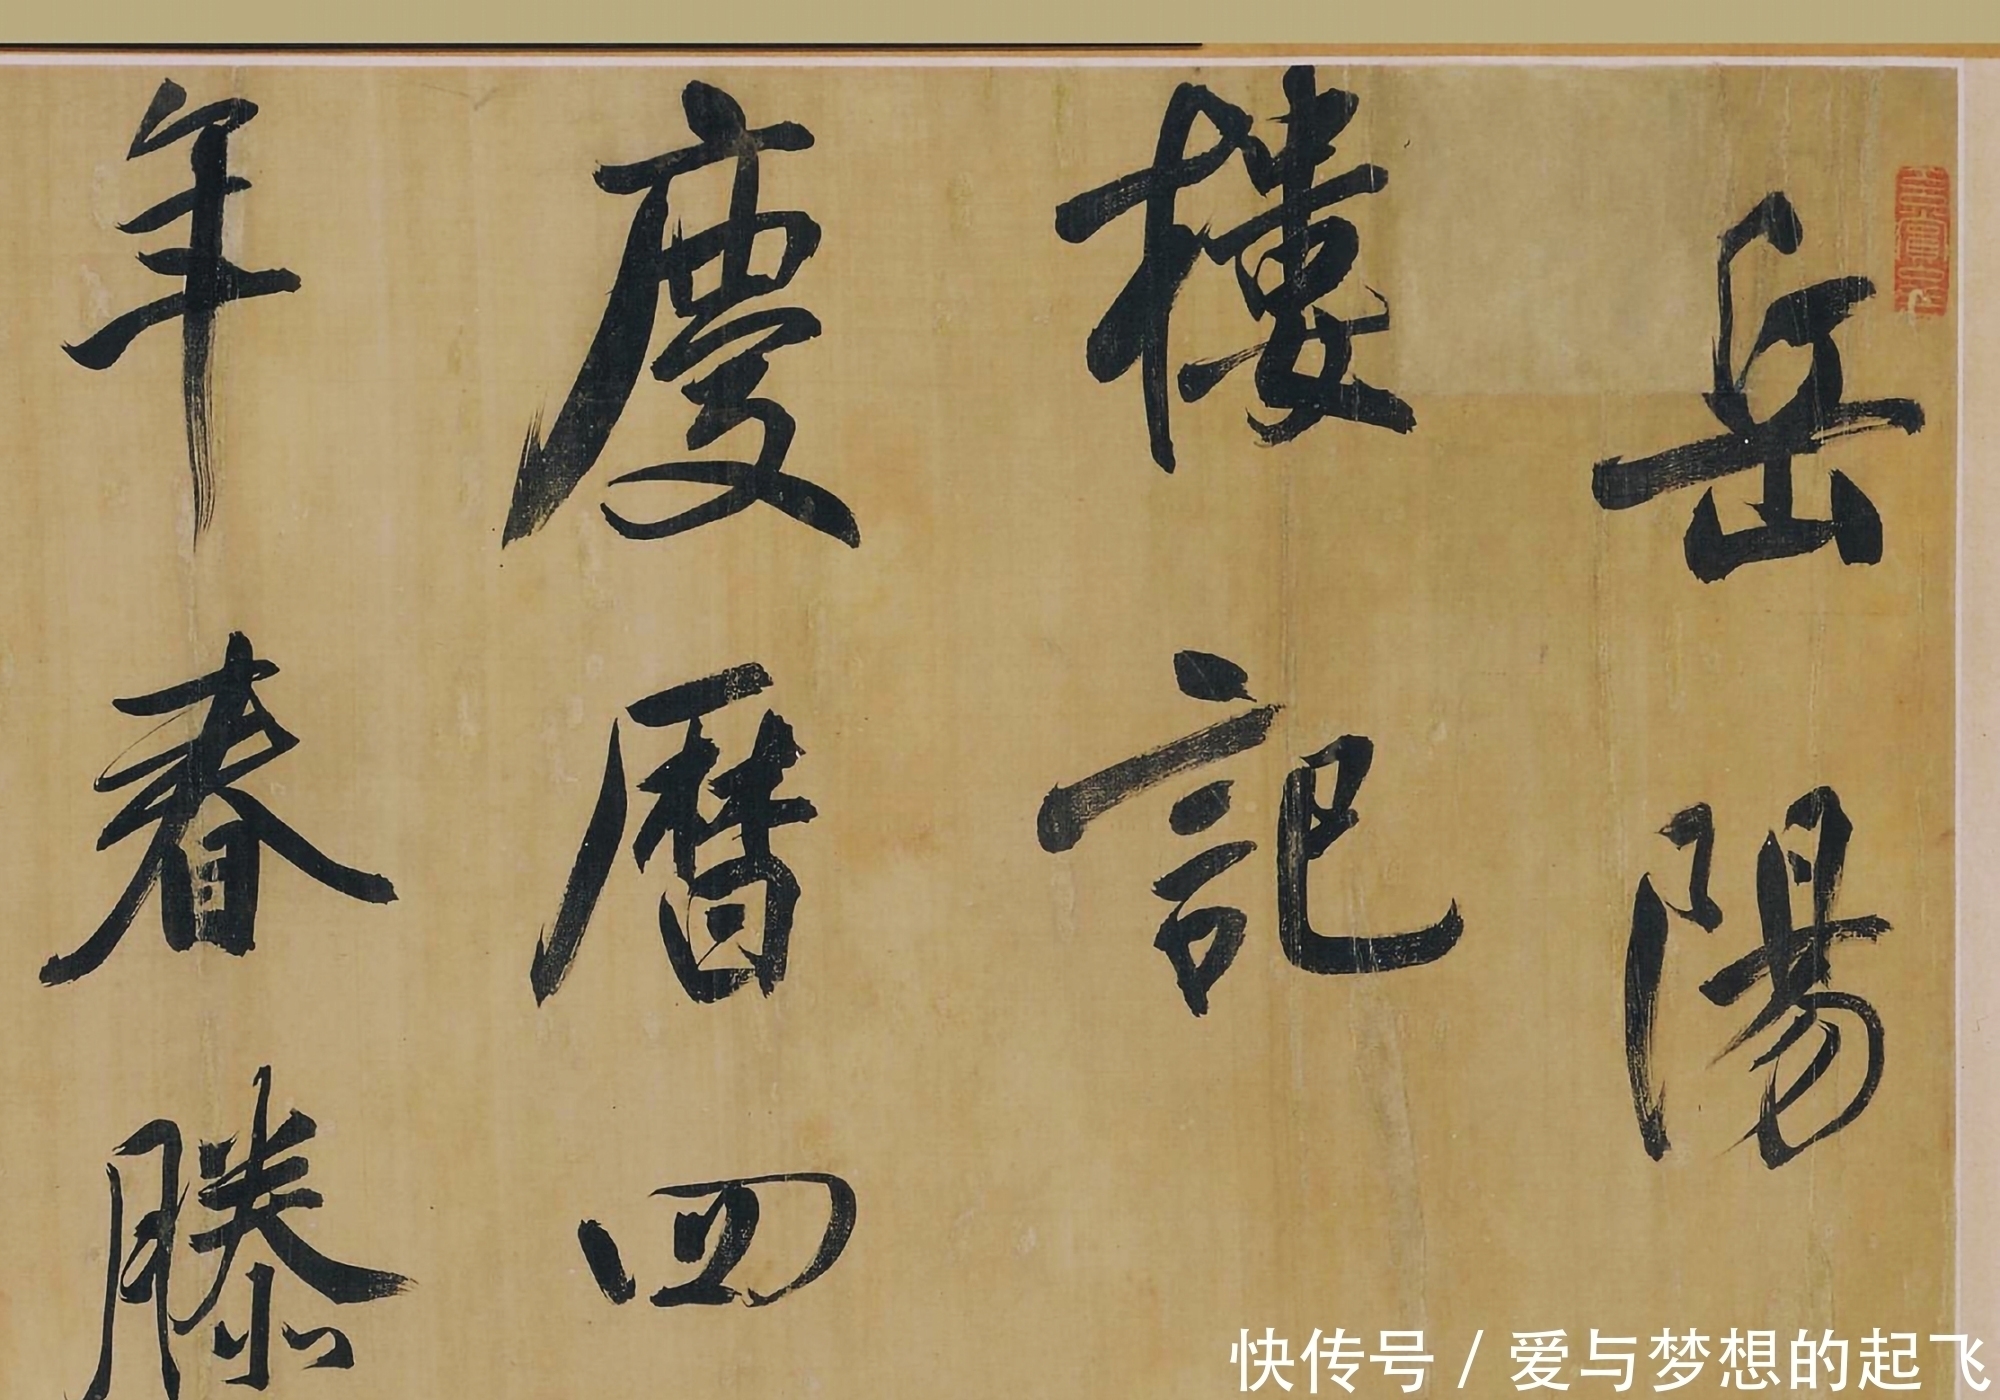 岳陽
樓記
慶曆四
年春滕
快传号 / 爱与梦想的起飞